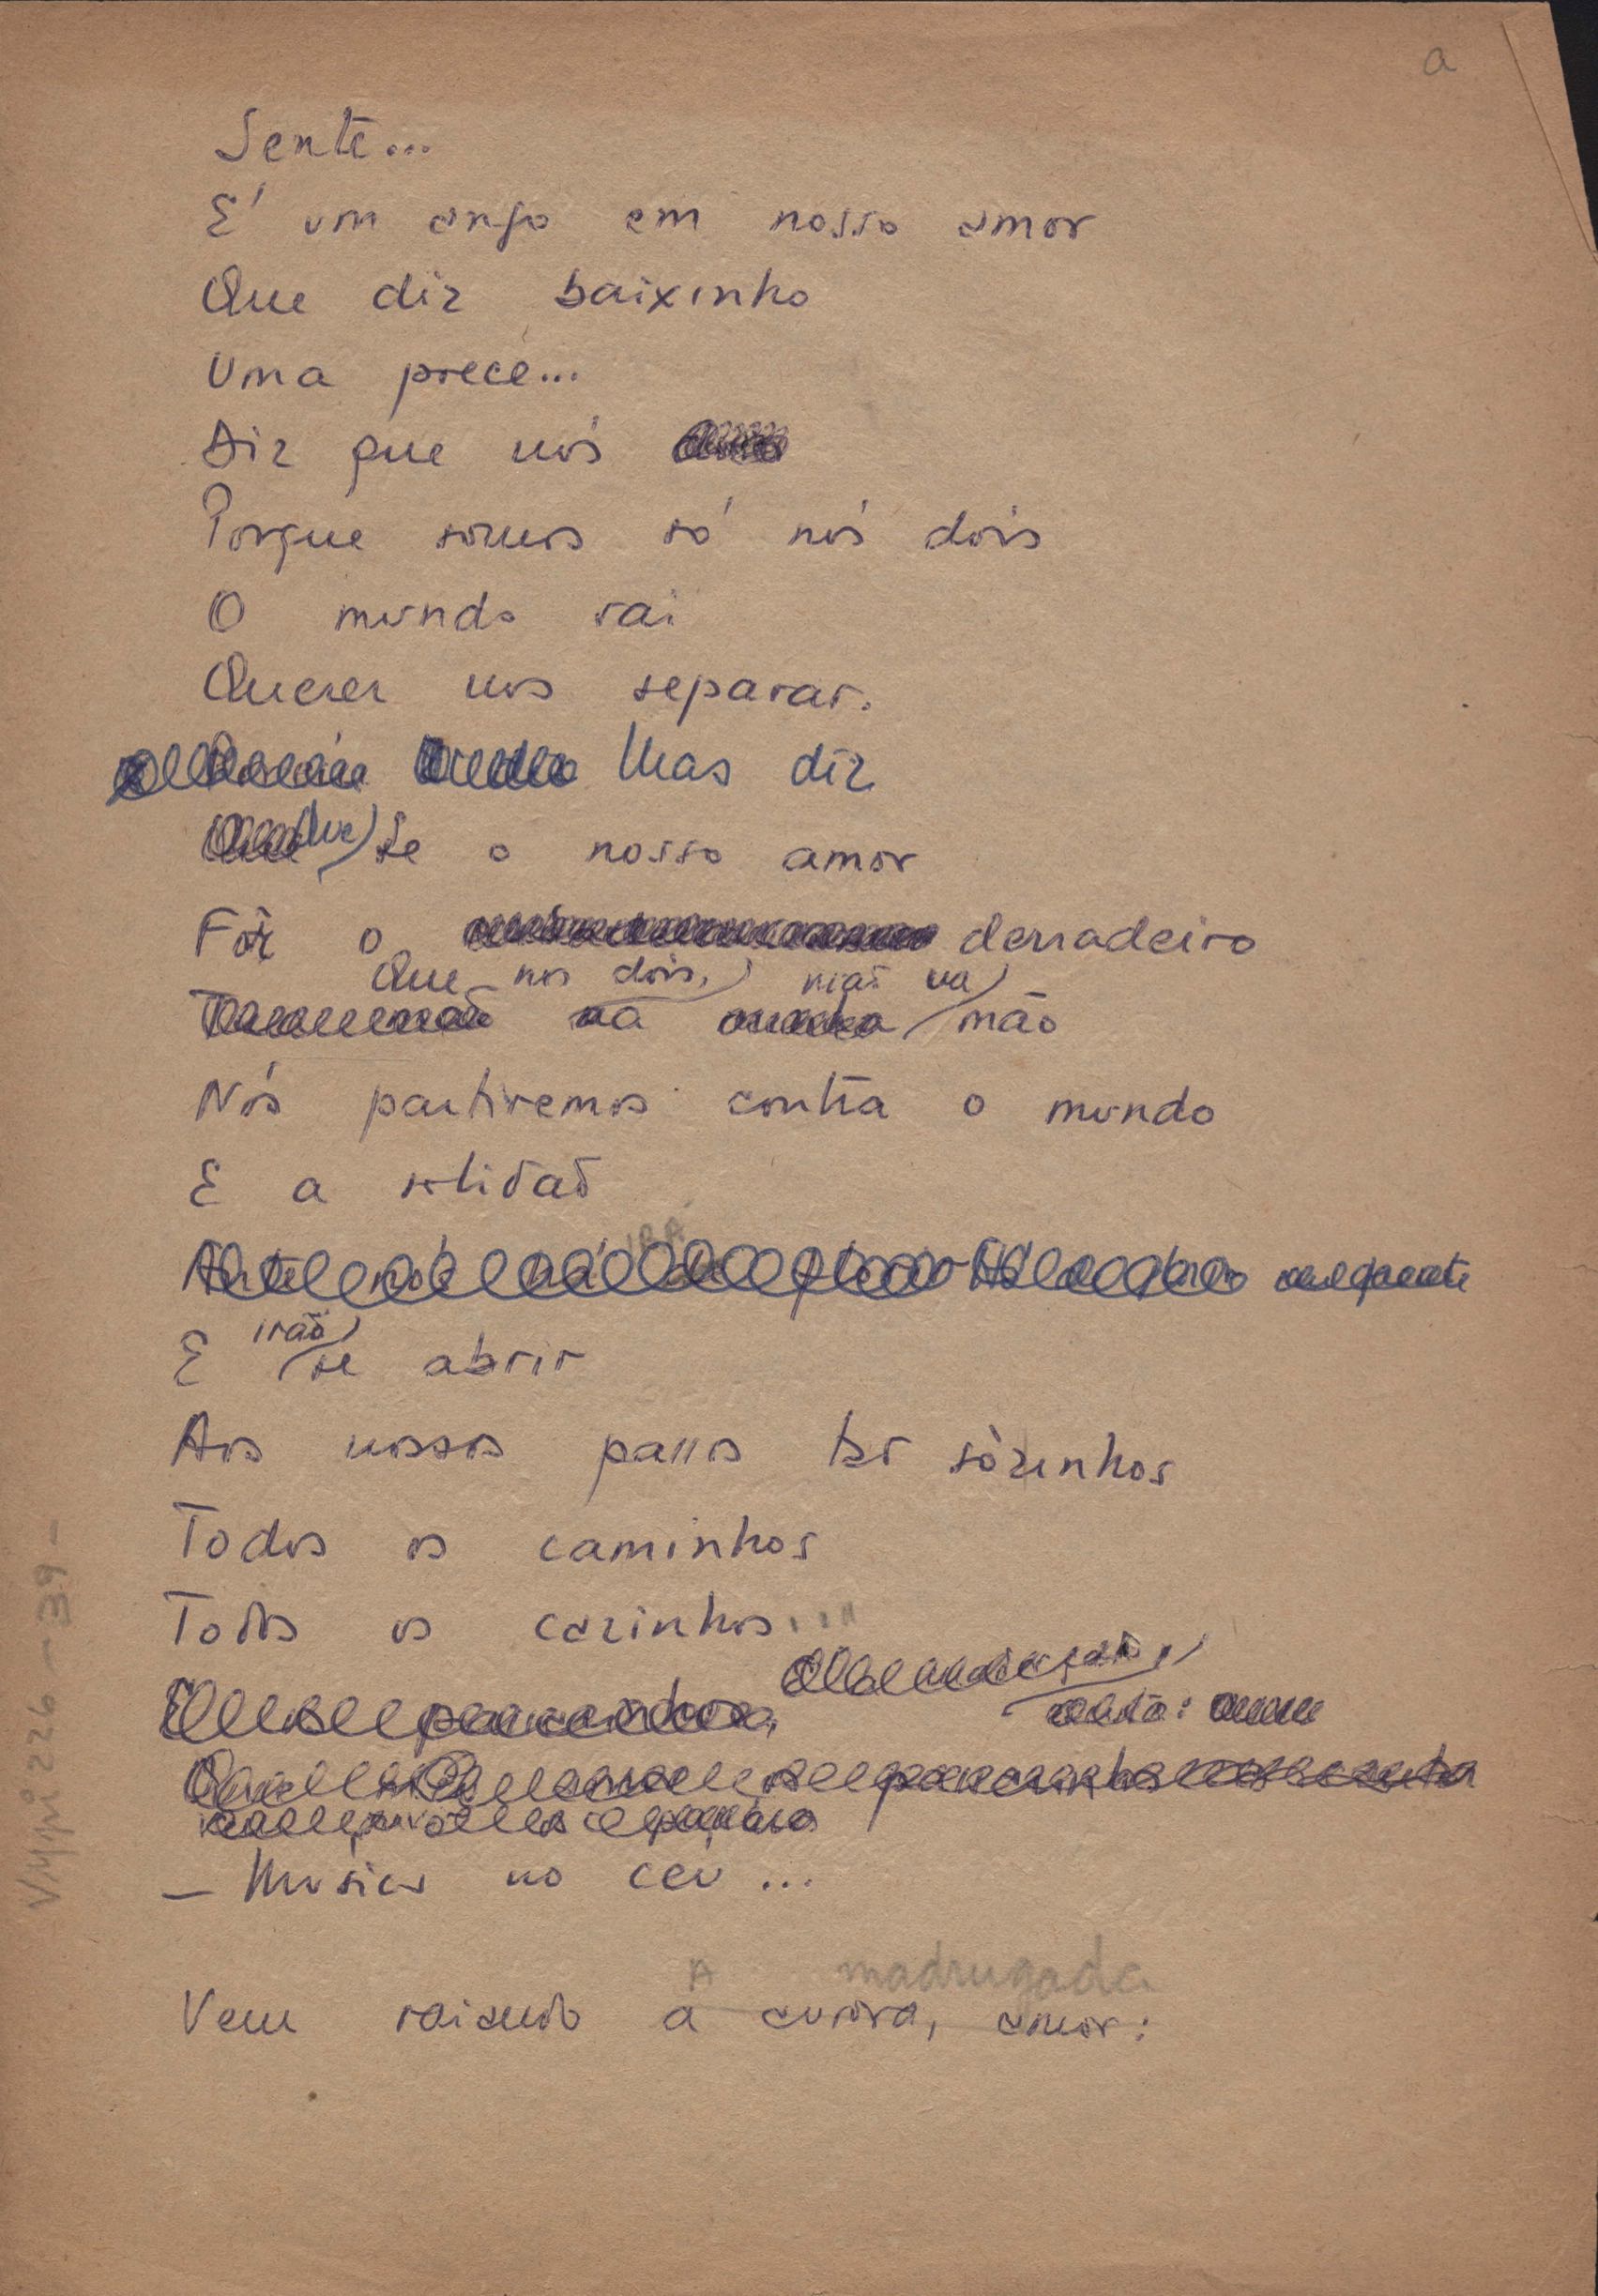 a
Sente...
E' um anjo em nosso amor
Que diz baixinho
Uma prece...
Diz que nós
Porque somos só nós dois
O mundo vai
Querer nos separar.
Mas diz
Que Se o nosso amor
Fôr o derradeiro
Que nos dois, mão na
mão
Nós partiremos contra o mundo
E a solidão
IRA
E irão se abrir
Aos nossos passos tão sòzinhos
Todos os caminhos
Todos os carinhos...
— Musica no céu...
A madrugada
Vem raiando a aurora, amor:
VMpi 226-39-